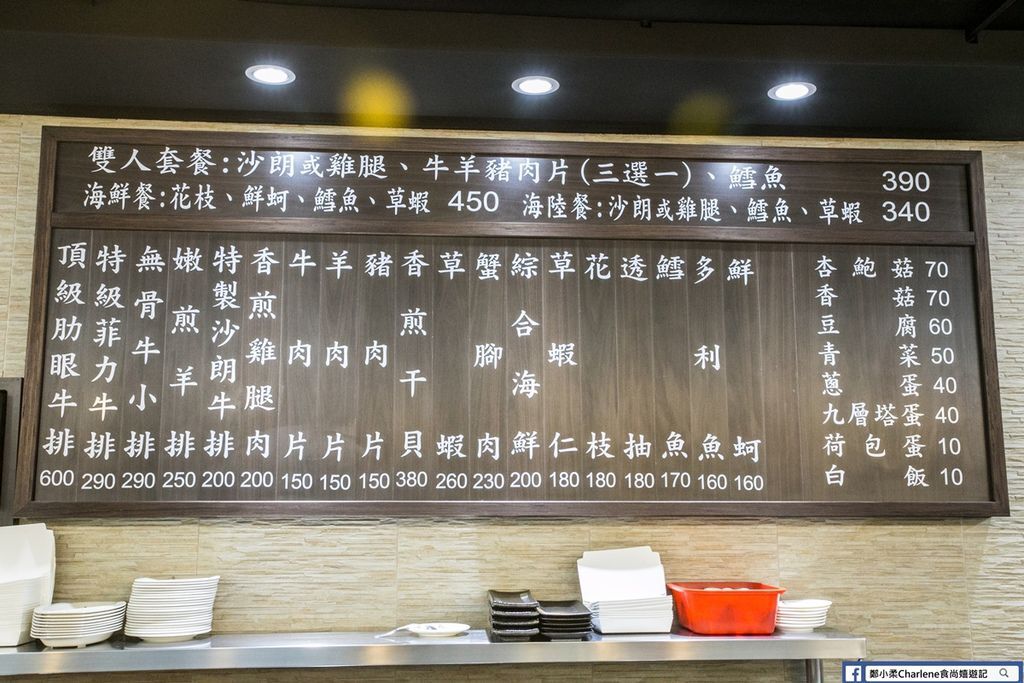 雙人套餐:沙朗或雞腿、牛羊豬肉片(三選一)、鱈魚 390
海鮮餐:花枝、鮮蚵、鱈魚、草蝦 450 海陸餐:沙朗或雞腿、鱈魚、草蝦 340
頂級肋眼牛排 600
特級菲力牛排 290
無骨牛小排 290
嫩煎羊排 250
特製沙朗牛排 200
香煎雞腿肉 200
牛肉片 150
羊肉片 150
豬肉片 150
香煎干貝 380
草蝦 260
蟹腳肉 230
綜合海鮮 200
草蝦仁 180
花枝 180
透抽 180
鱈魚 170
多利魚 160
鮮蚵 160
杏鮑菇 70
香菇 70
豆腐 60
青菜 50
蔥蛋 40
九層塔蛋 40
荷包蛋 10
白飯 10
鄭小柔Charlene食尚嬉遊記